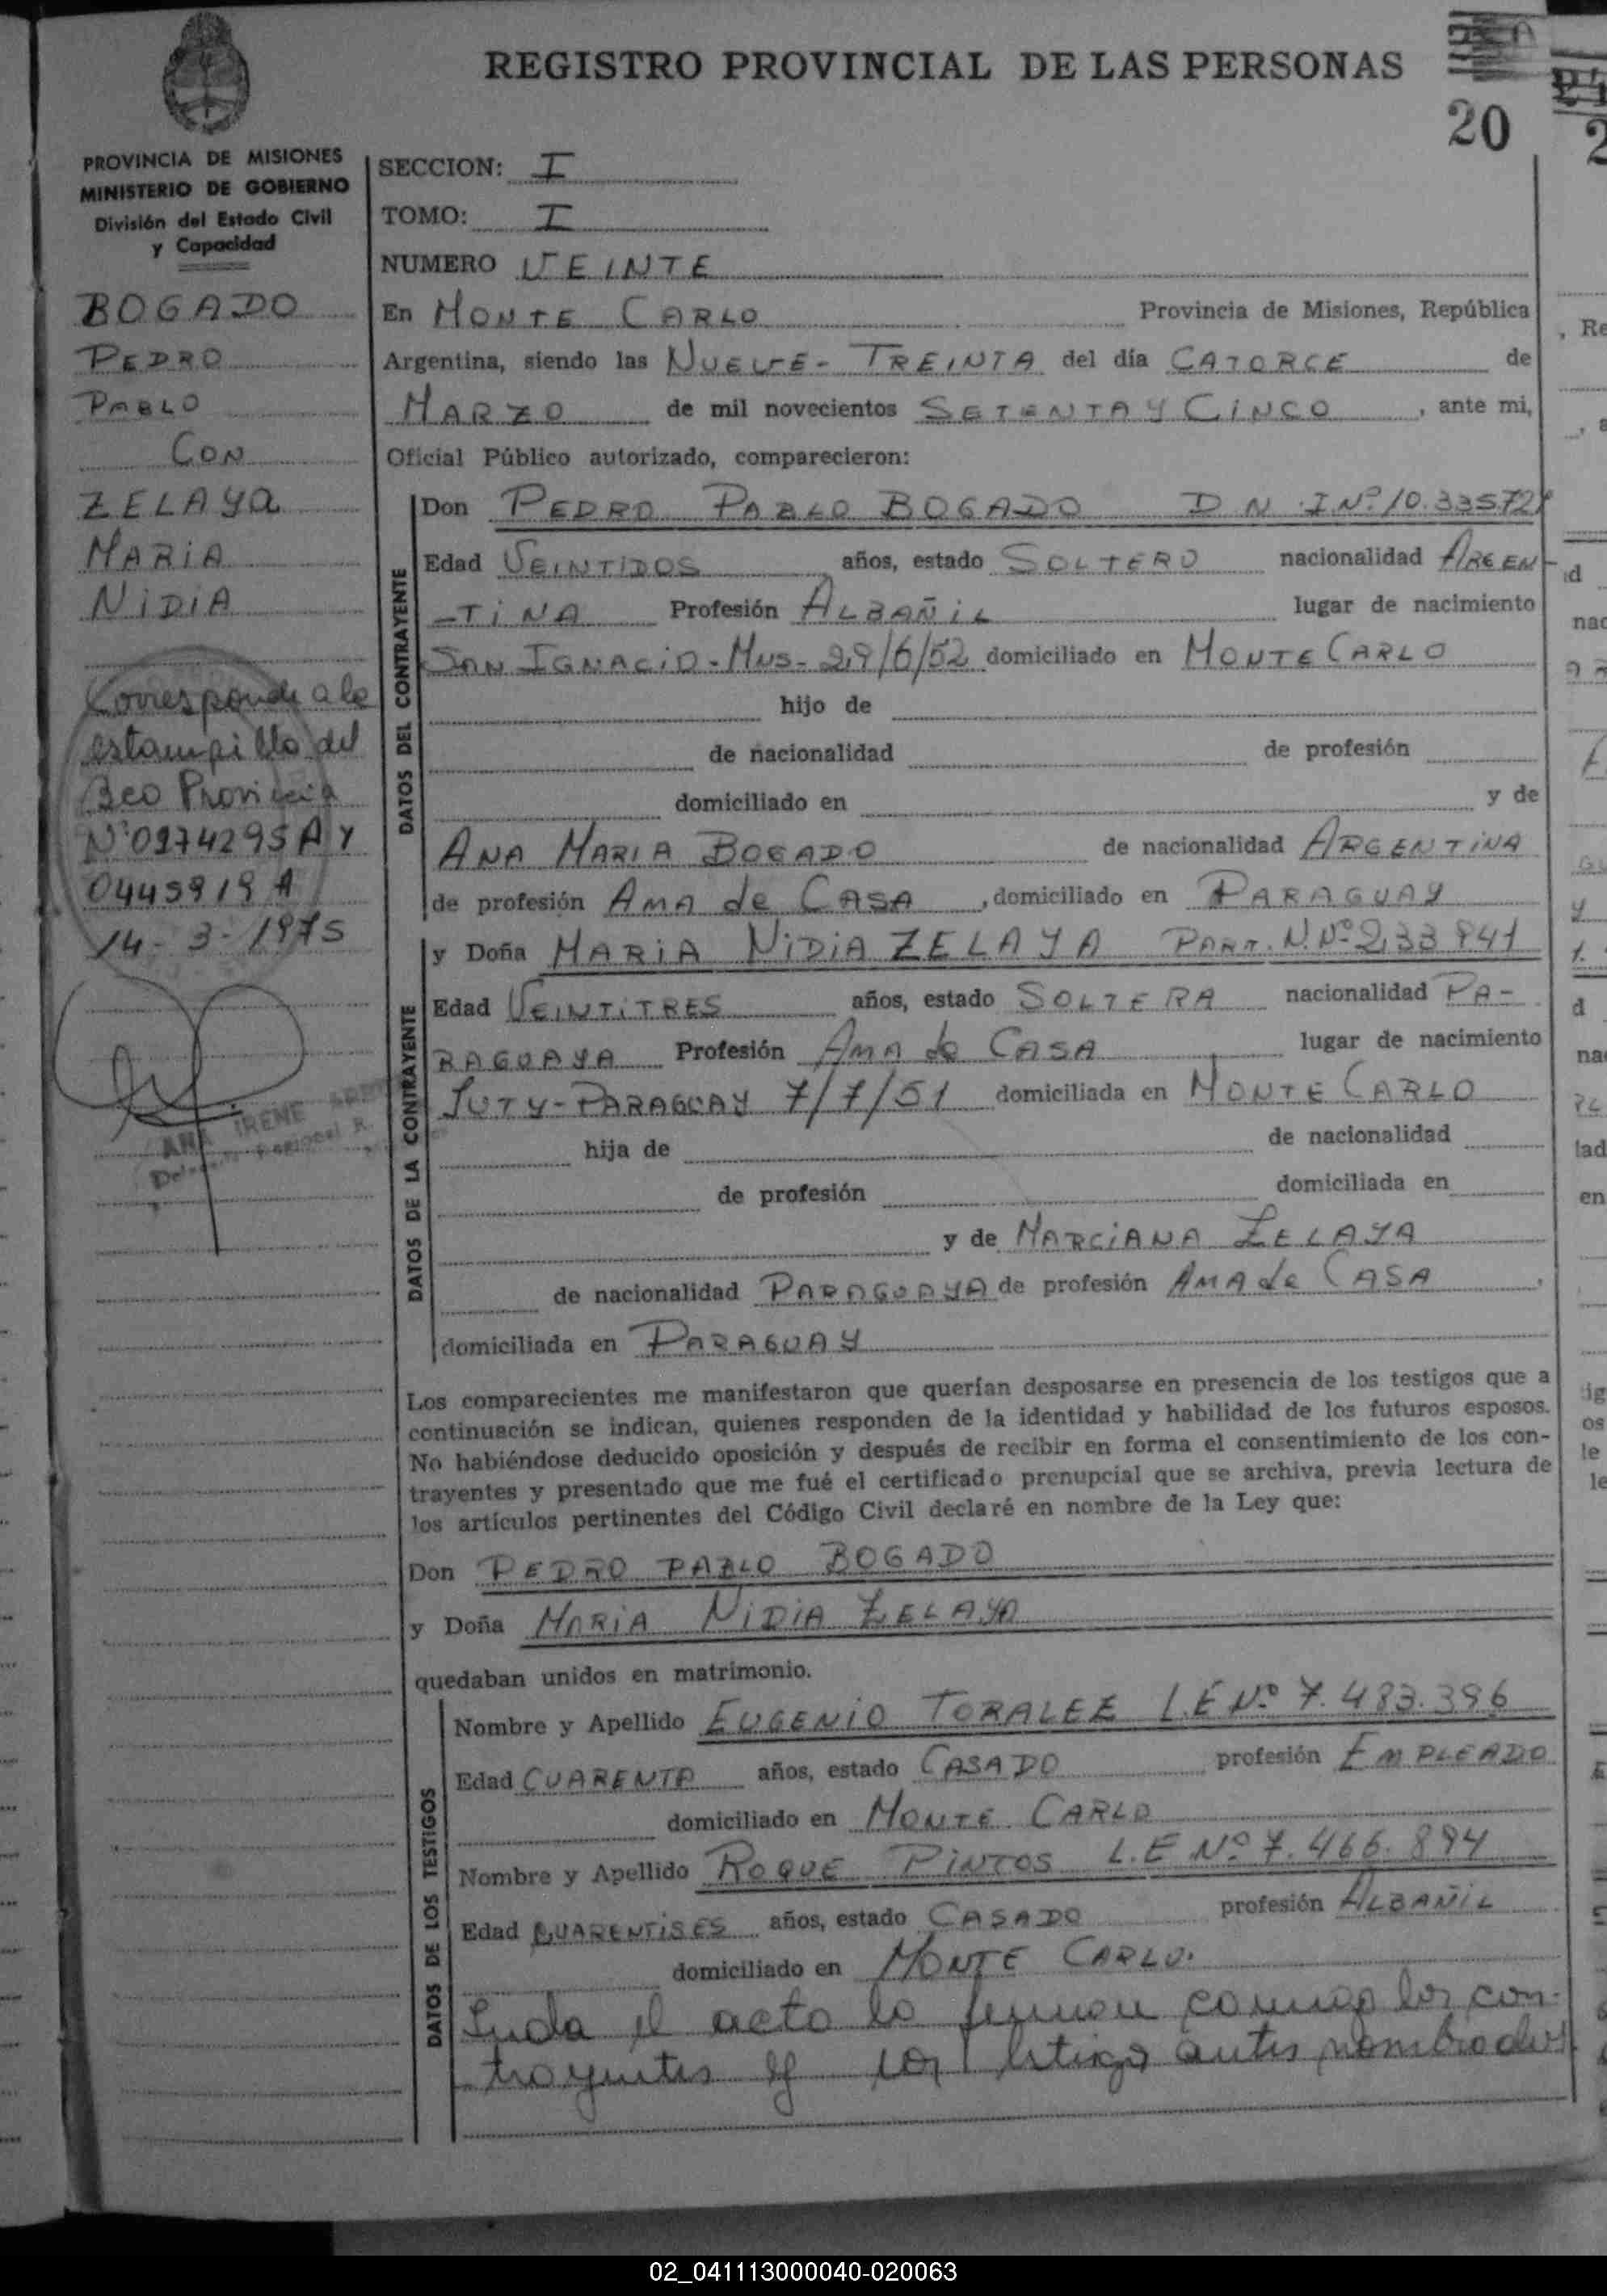 REGISTRO PROVINCIAL DE LAS PERSONAS
20
PROVINCIA DE MISIONES
MINISTERIO DE GOBIERNO
División del Estado Civil
y Capacidad
BOGADO
PEDRO
PABLO
CON
ZELAYA
MARIA
NIDIA
Corresponde a la
estampilla del
Bco Provincia
Nº 0274295 A Y
0445919 A
14-3-1975
ANA IRENE
SECCION: I
TOMO: I
NUMERO VEINTE
En MONTE CARLO Provincia de Misiones, República
Argentina, siendo las NUEVE-TREINTA del día CATORCE de
MARZO de mil novecientos SETENTA Y CINCO, ante mi,
Oficial Público autorizado, comparecieron:
DATOS DEL CONTRAYENTE
Don PEDRO PABLO BOGADO D N I Nº 10.335721
Edad VEINTIDOS años, estado SOLTERO nacionalidad ARGEN-
-TINA Profesión ALBAÑIL lugar de nacimiento
SAN IGNACIO-MNS-29/6/52 domiciliado en MONTE CARLO
hijo de
de nacionalidad de profesión
domiciliado en y de
ANA MARIA BOGADO de nacionalidad ARGENTINA
de profesión AMA de CASA, domiciliado en PARAGUAY
DATOS DE LA CONTRAYENTE
y Doña MARIA NIDIA ZELAYA PART. N. Nº 233841
Edad VEINTITRES años, estado SOLTERA nacionalidad PA-
RAGUAYA Profesión AMA de CASA lugar de nacimiento
YUTY-PARAGUAY 7/7/51 domiciliada en MONTE CARLO
hija de de nacionalidad
de profesión domiciliada en
y de MARCIANA ZELAYA
de nacionalidad PARAGUAYA de profesión AMA de CASA,
domiciliada en PARAGUAY
Los comparecientes me manifestaron que querían desposarse en presencia de los testigos que a
continuación se indican, quienes responden de la identidad y habilidad de los futuros esposos.
No habiéndose deducido oposición y después de recibir en forma el consentimiento de los con-
trayentes y presentado que me fué el certificado prenupcial que se archiva, previa lectura de
los artículos pertinentes del Código Civil declaré en nombre de la Ley que:
Don PEDRO PABLO BOGADO
y Doña MARIA NIDIA ZELAYA
quedaban unidos en matrimonio.
DATOS DE LOS TESTIGOS
Nombre y Apellido EUGENIO TORALEZ L.E Nº 7.483.396
Edad CUARENTA años, estado CASADO profesión EMPLEADO
domiciliado en MONTE CARLO
Nombre y Apellido ROQUE PINTOS L.E Nº 7.466.894
Edad CUARENTISES años, estado CASADO profesión ALBAÑIL
domiciliado en MONTE CARLO.
Leida el acta la firman conmigo los con-
trayentes y los testigos antes nombrados
02_041113000040-020063